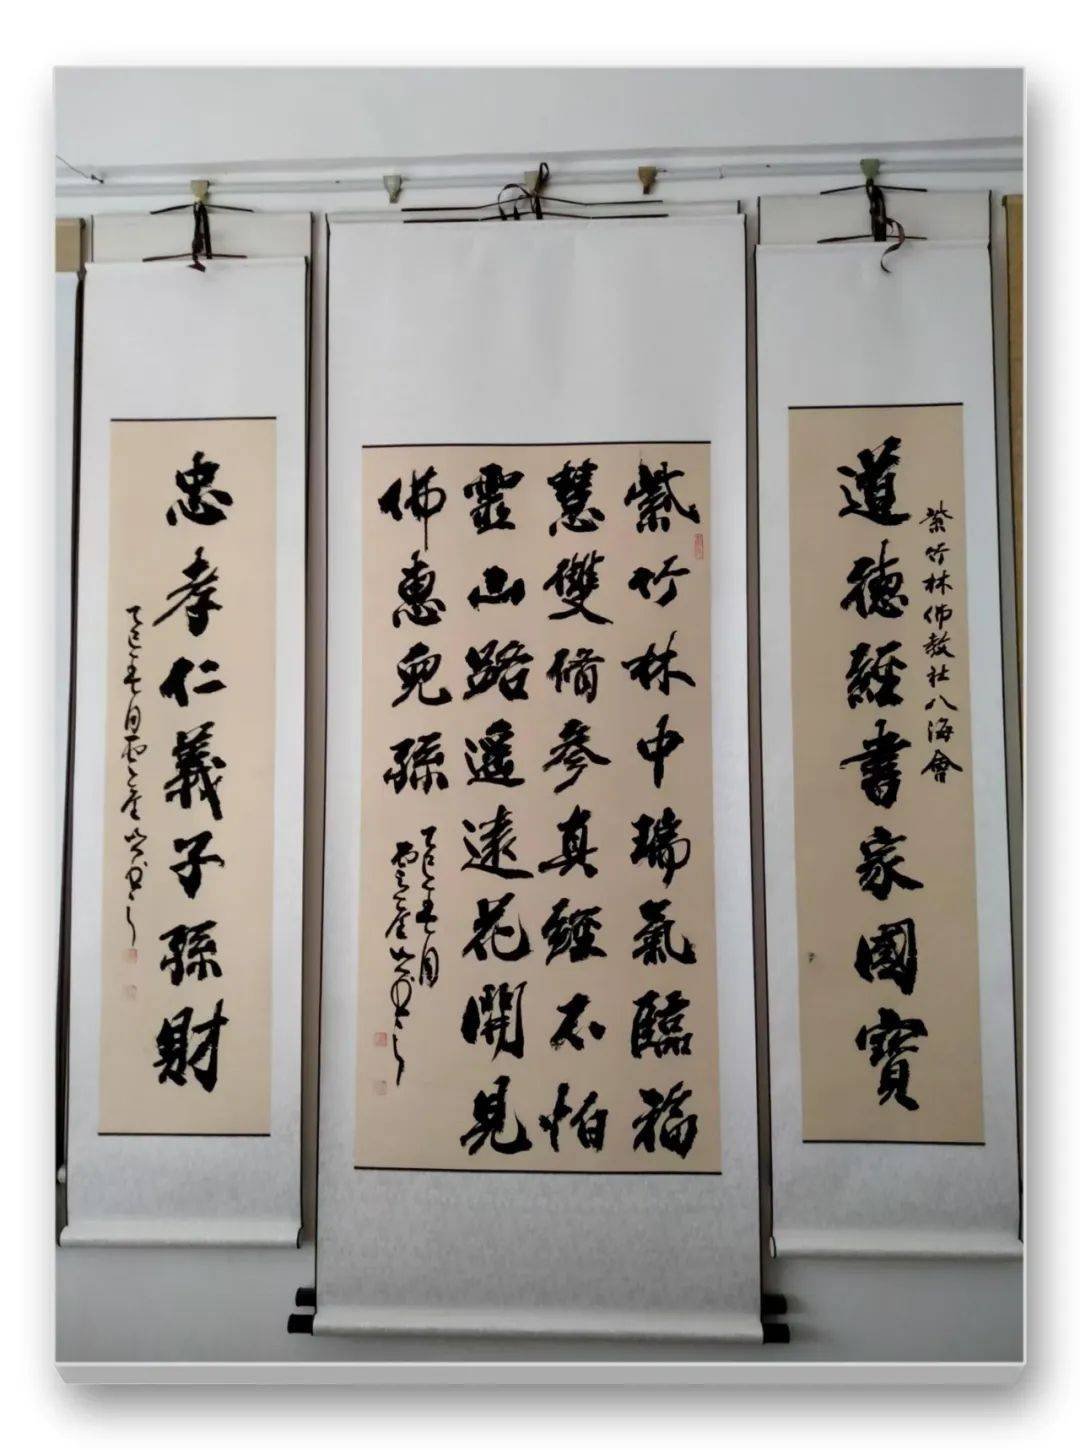 紫竹林佛教社八海會
道德經書家國寶
紫竹林中瑞氣臨福
慧雙脩參真經不怕
靈山路遥遠花開見
佛惠兒孫
乙巳五月
忠孝仁義子孫財
乙巳五月